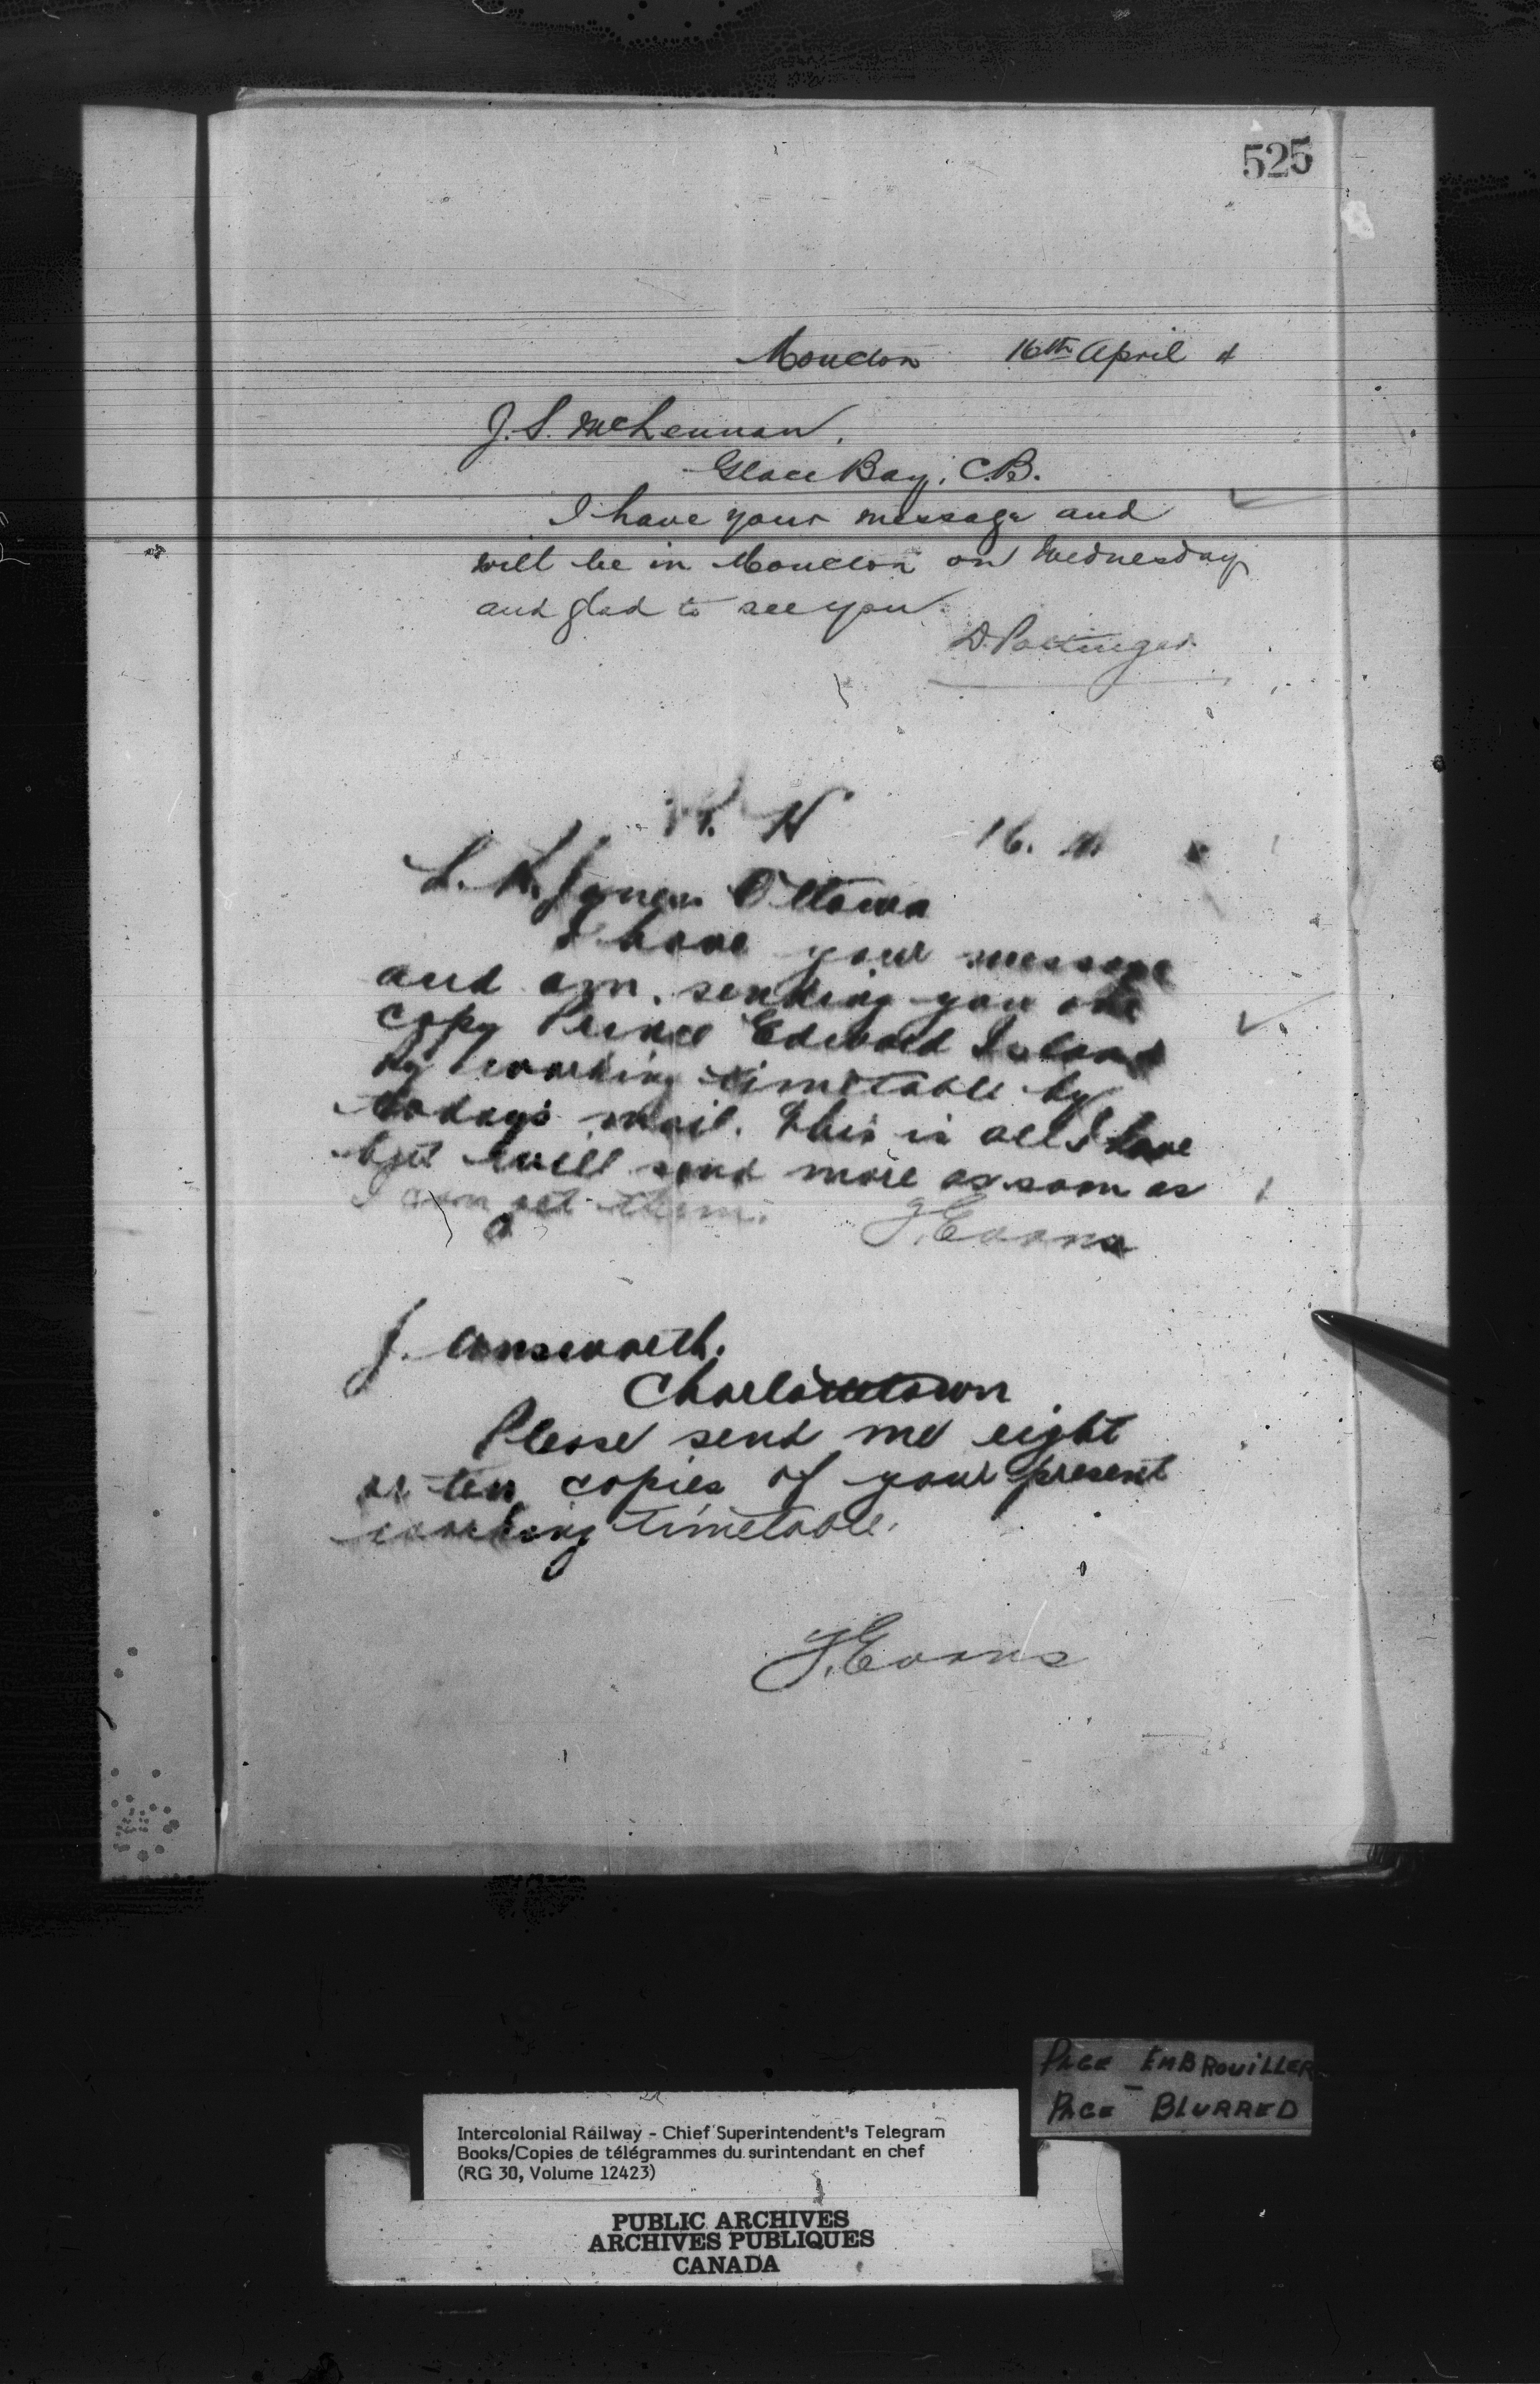 525
Moncton 16th April 4
J. S. McLennan,
Glace Bay, C.B.
I have your message and
will be in Moncton on Wednesday
and glad to see you.
D. Pottinger.
H 16.
L. K. Jones Ottawa
I have your message
and am sending you one
copy Prince Edward Island
Ry working timetable by
todays mail. This is all I have
but will send more as soon as
I can get them. T. Evans
J. Unsworth.
Charlottetown
Please send me eight
or ten copies of your present
working timetable.
T. Evans
PAGE EMBROUILLER
PAGE BLURRED
Intercolonial Railway - Chief Superintendent's Telegram
Books/Copies de télégrammes du surintendant en chef
(RG 30, Volume 12423)
PUBLIC ARCHIVES
ARCHIVES PUBLIQUES
CANADA